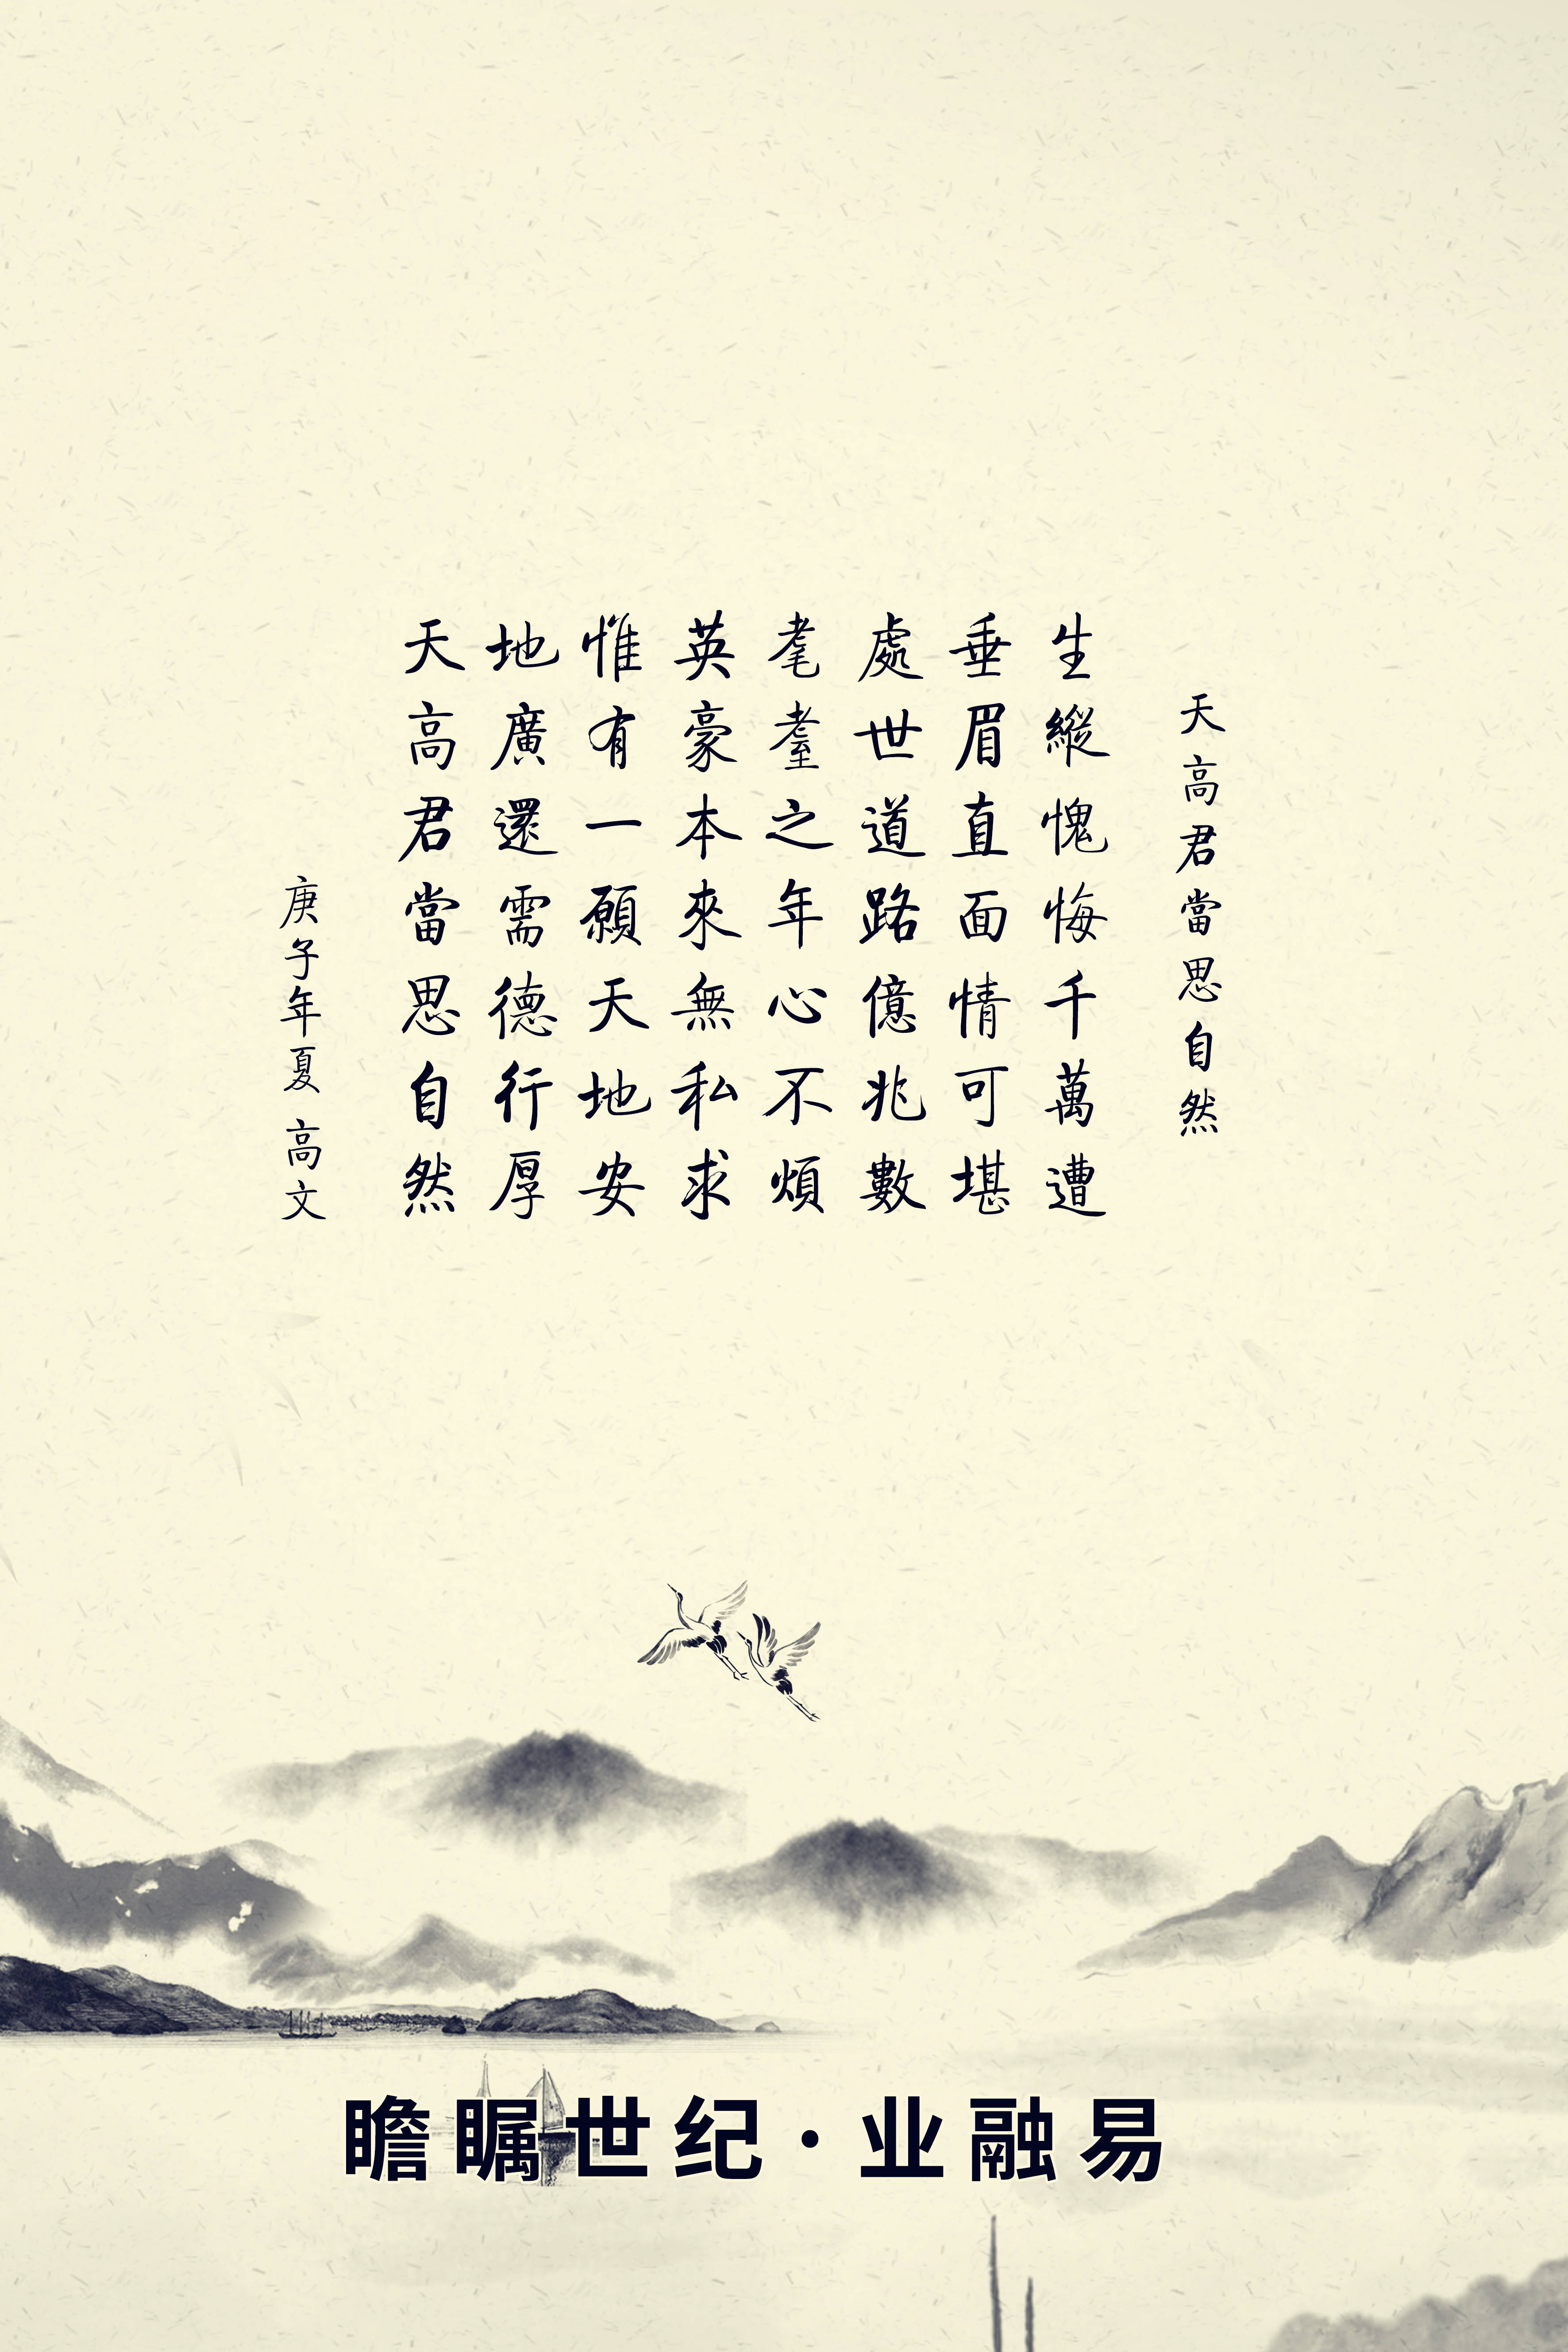 天高君當思自然
生縱愧悔千萬遭
垂眉直面情可堪
處世道路億兆數
耄耋之年心不煩
英豪本來無私求
惟有一願天地安
地廣還需德行厚
天高君當思自然
庚子年夏 高文
瞻瞩世纪·业融易